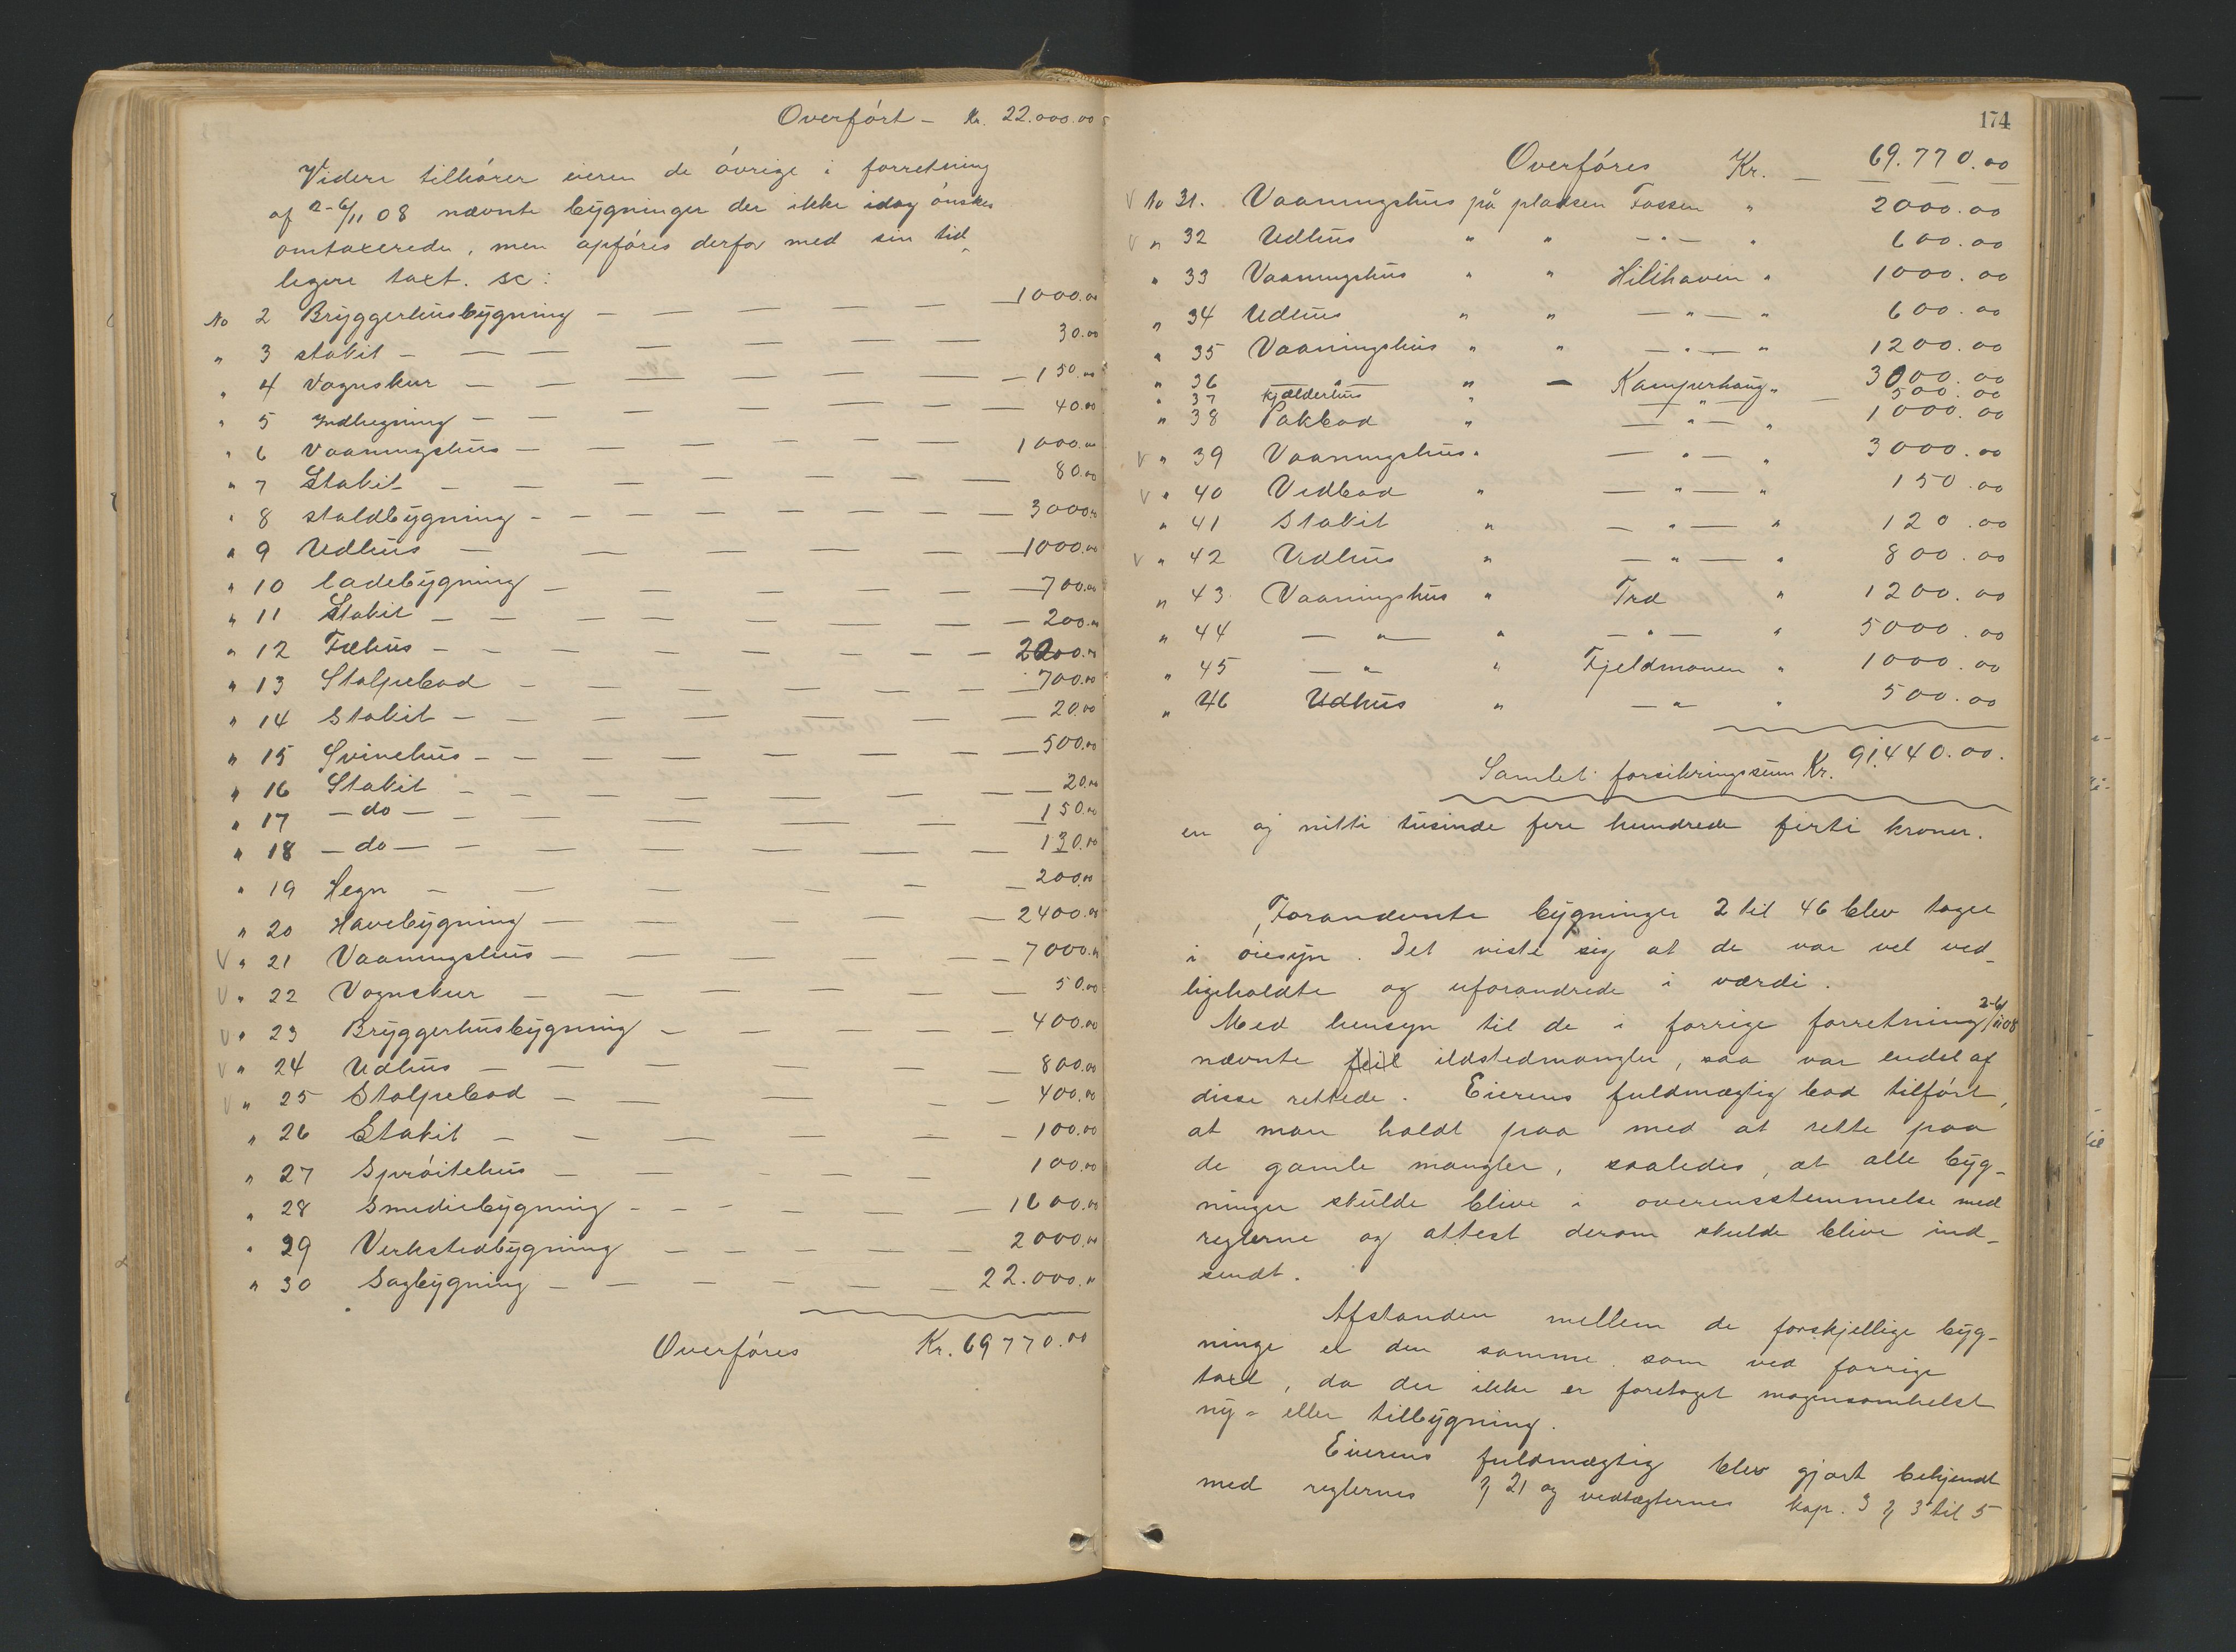 Overført – Kr. 22.000.00
Videre tilhører eieren de øvrige i forretning
af 2-6/11 08 nævnte bygninger der ikke idag ønskes
omtaxerede, men opføres derfor med sin tid-
ligere taxt. sc:
No 2 Bryggerhusbygning – 1000.00
" 3 stakit – 30.00
" 4 Vognskur – 150.00
" 5 Indhegning – 40.00
" 6 Vaaningshus – 1000.00
" 7 Stakit – 80.00
" 8 staldbygning – 3000.00
" 9 Udhus – 1000.00
" 10 ladebygning – 700.00
" 11 Stakit – 200.00
" 12 Fæhus – 2200.00
" 13 Stolpebod – 700.00
" 14 Stakit – 20.00
" 15 Svinehus – 500.00
" 16 Stakit – 20.00
" 17 – do – 150.00
" 18 – do – 130.00
" 19 Hegn – 200.00
" 20 Havebygning – 2400.00
V " 21 Vaaningshus – 7000.00
V " 22 Vognskur – 50.00
V " 23 Bryggerhusbygning – 400.00
V " 24 Udhus – 800.00
V " 25 Stolpebod – 400.00
" 26 Stakit – 100.00
" 27 Sprøitehus – 100.00
" 28 Smediebygning – 1600.00
" 29 Verkstedbygning – 2000.00
" 30 Sagbygning – 22.000.00
Overføres Kr. 69770.00
174
Overføres Kr. – 69.770.00
V No 31. Vaaningshus på pladsen Fossen " 2000.00
V " 32 Udhus " " – " – " 600.00
" 33 Vaaningshus " " Hilihaven " 1000.00
" 34 Udhus " " – " – " 600.00
" 35 Vaaningshus " " – " – " 1200.00
" 36 – " – " – Kamperhaug " 3000.00
" 37 kjælderhus " – " – 500.00
" 38 Pakbod " – " – " 1000.00
V " 39 Vaaningshus " – " – " 3000.00
V " 40 Vedbod " – " – " 150.00
" 41 Stakit " – " – " 120.00
V " 42 Udhus " – " – " 800.00
" 43 Vaaningshus " Trø " 1200.00
" 44 – " – " – " – " 5000.00
" 45 – " " Fjeldmouen " 1000.00
" 46 Udhus " – " " 500.00
Samlet forsikringssum Kr. 91.440.00.
en og nitti tusinde fire hundrede førti kroner.
Forannævnte bygninger 2 til 46 blev taget
i øiesyn. Det viste sig at de var vel ved-
ligeholdte og uforandrede i værdi.
Med hensyn til de i forrige forretning 2-6/11 08
nævnte feil ildstedmangler, saa var endel af
disse rettede. Eierens fuldmægtig bad tilført,
at man holdt paa med at rette paa
de gamle mangler, saaledes, at alle byg-
ninger skulde blive i overensstemmelse med
reglerne og attest derom skulde blive ind-
sendt.
Afstanden mellem de forskjellige byg-
ninge er den samme som ved forrige
taxt, da der ikke er foretaget nogensomhelst
ny- eller tilbygning.
Eierens fuldmægtig blev gjort bekjendt
med reglernes § 21 og vedtægternes kap. 3 § 3 til 5